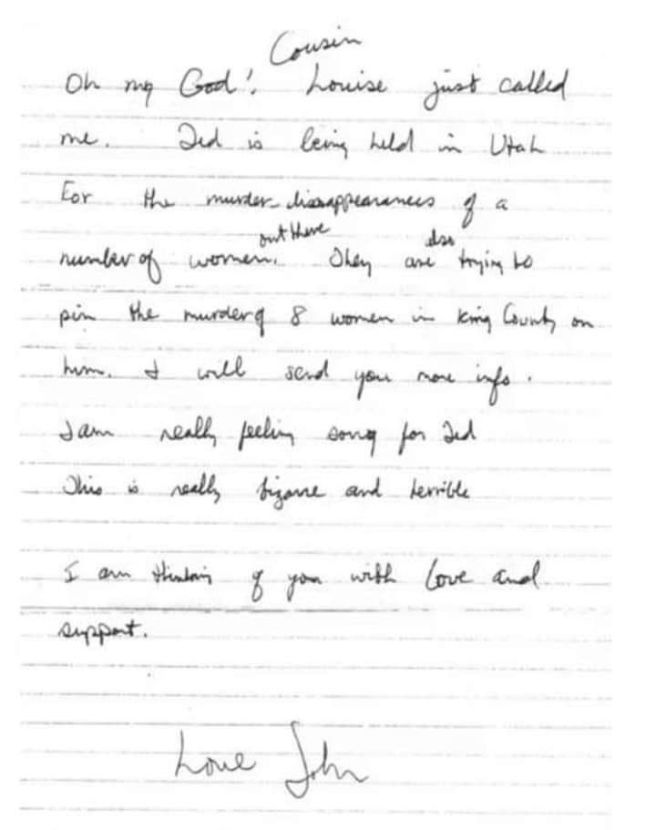 Cousin
Oh my God! Louise just called
me. Ted is being held in Utah
For the murder-dissappearances of a
out there also
number of women. They are trying to
pin the murder of 8 women in King County on
him. I will send you more info.
I am really feeling sorry for Ted
This is really bizarre and terrible
I am thinking of you with love and
support.
Love John